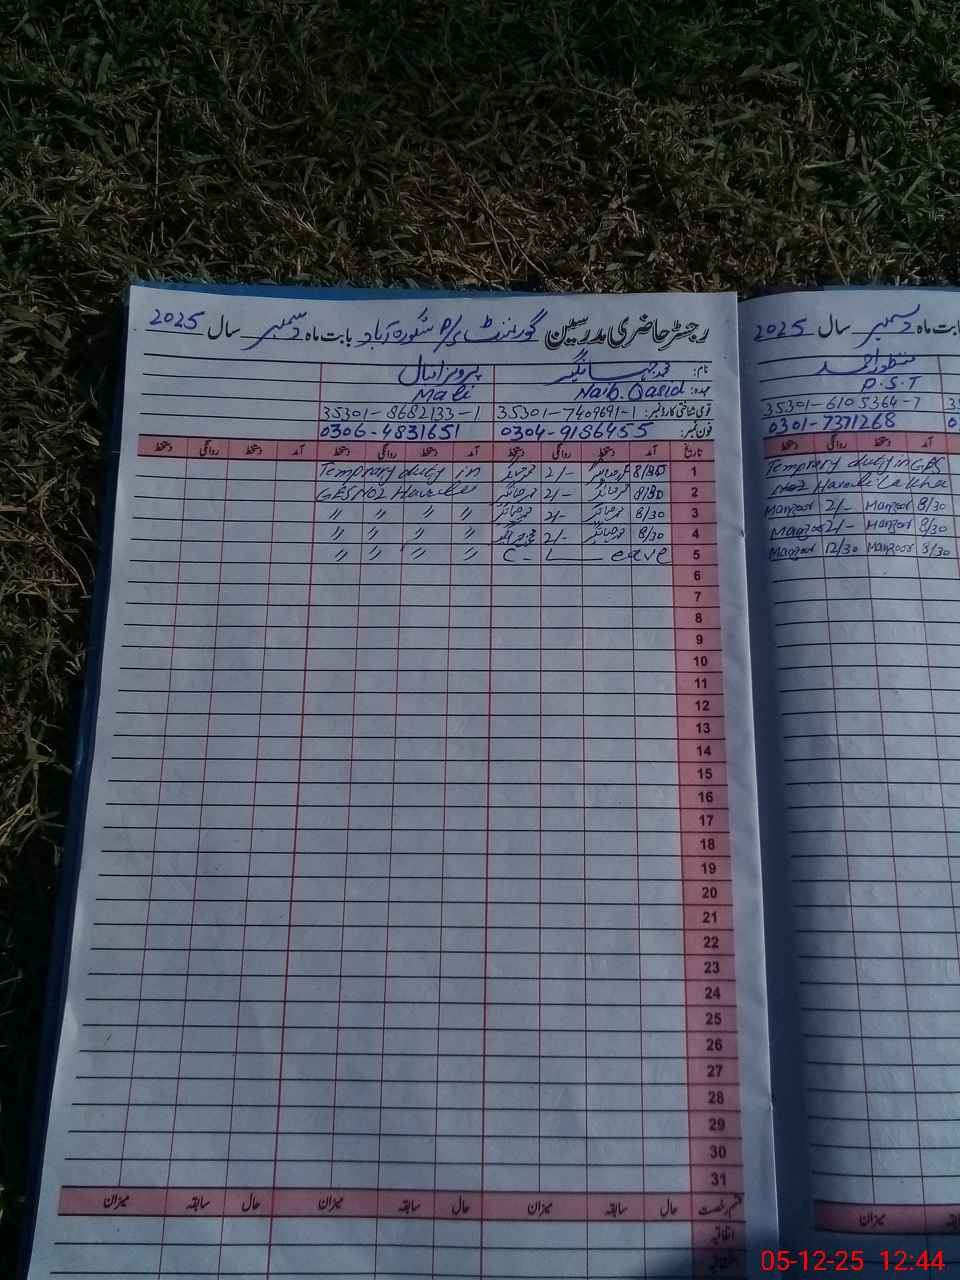 رجسٹر حاضری مدرسین گورنمنٹ P/S شکورہ آباد بابت ماہ دسمبر سال 2025
نام: محمد جہانگیر پرویز اقبال
عہدہ: Naib. Qasid Mali
قومی شناختی کارڈ نمبر: 35301-7409691-1 35301-8682133-1
فون نمبر: 0304-9186455 0306-4831651
تاریخ آمد دستخط روانگی دستخط آمد دستخط روانگی دستخط آمد دستخط روانگی دستخط
1 8/30 2/- Temprary duty in
2 8/30 2/- GES NO2
3 8/30 2/- 〃 〃 〃 〃
4 8/30 2/- 〃 〃 〃 〃
5 C-Leave 〃 〃 〃 〃
6
7
8
9
10
11
12
13
14
15
16
17
18
19
20
21
22
23
24
25
26
27
28
29
30
31
قسم رخصت حال سابقہ میزان حال سابقہ میزان حال سابقہ میزان
اتفاقیہ
بابت ماہ دسمبر سال 2025
منظور احمد
P.S.T
35301-6105364-7
0301-7371268
آمد دستخط روانگی دستخط
Temprary duty in GES
NO2 Haveli Lakha
Manzoor 2/- Manzoor 8/30
Manzoor 2/- Manzoor 8/30
Manzoor 12/30 Manzoor 8/30
میزان
05-12-25 12:44